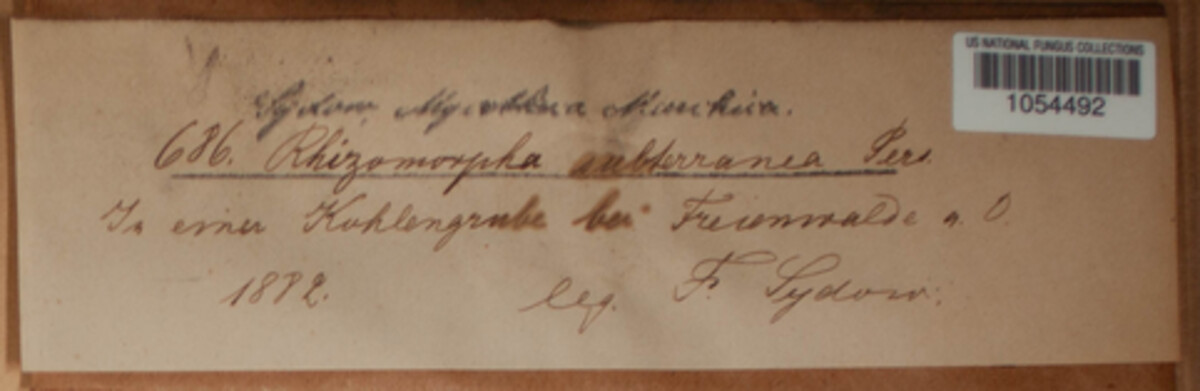 US NATIONAL FUNGUS COLLECTIONS
1054492
Sydow, Mycotheca Marchica.
686. Rhizomorpha subterranea Pers.
In einer Kohlengrube bei Freienwalde a. O.
1882. leg. F. Sydow.